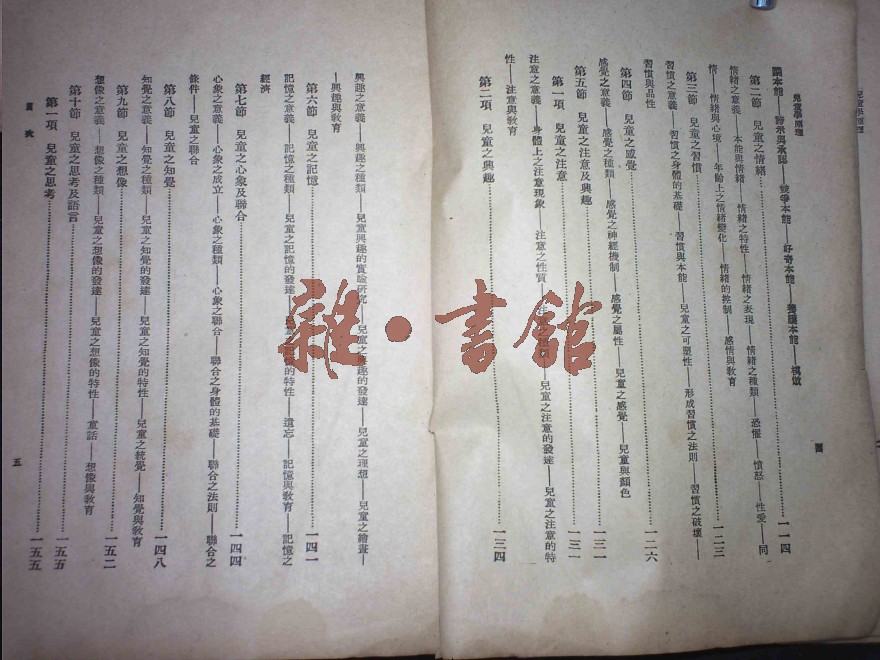 兒童學原理
謂本能——誇示與承認——競爭本能——好奇本能——養護本能——模倣
第二節　兒童之情緒……一一四
情緒之意義——本能與情緒——情緒之特性——情緒之表現——情緒之種類——恐懼——憤怒——性愛——同
情——情緒與心境——年齡上之情緒變化——情緒的控制——感情與教育
第三節　兒童之習慣……一二三
習慣之意義——習慣之身體的基礎——習慣與本能——兒童之可塑性——形成習慣之法則——習慣之破壞——
習慣與品性
第四節　兒童之感覺……一二六
感覺之意義——感覺之種類——感覺之神經機制——感覺之屬性——兒童之感覺——兒童與顏色
第五節　兒童之注意及興趣……一三一
第一項　兒童之注意……一三一
注意之意義——身體上之注意現象——注意之性質——注意之種類——兒童之注意的發達——兒童之注意的特
性——注意與教育
第二項　兒童之興趣……一三四
四
興趣之意義——興趣之種類——兒童興趣的實驗研究——兒童之興趣的發達——兒童之理想——兒童之繪畫——
——興趣與教育
第六節　兒童之記憶……一四一
記憶之意義——記憶之種類——兒童之記憶的發達——兒童之記憶的特性——遺忘——記憶與教育——記憶之
經濟
第七節　兒童之心象及聯合……一四四
心象之意義——心象之成立——心象之種類——心象之聯合——聯合之身體的基礎——聯合之法則——聯合之
條件——兒童之聯合
第八節　兒童之知覺……一四八
知覺之意義——知覺之種類——兒童之知覺的發達——兒童之知覺的特性——兒童之統覺——知覺與教育
第九節　兒童之想像……一五二
想像之意義——想像之種類——兒童之想像的發達——兒童之想像的特性——童話——想像與教育
第十節　兒童之思考及語言……一五五
第一項　兒童之思考……一五五
目次
五
雜·書館